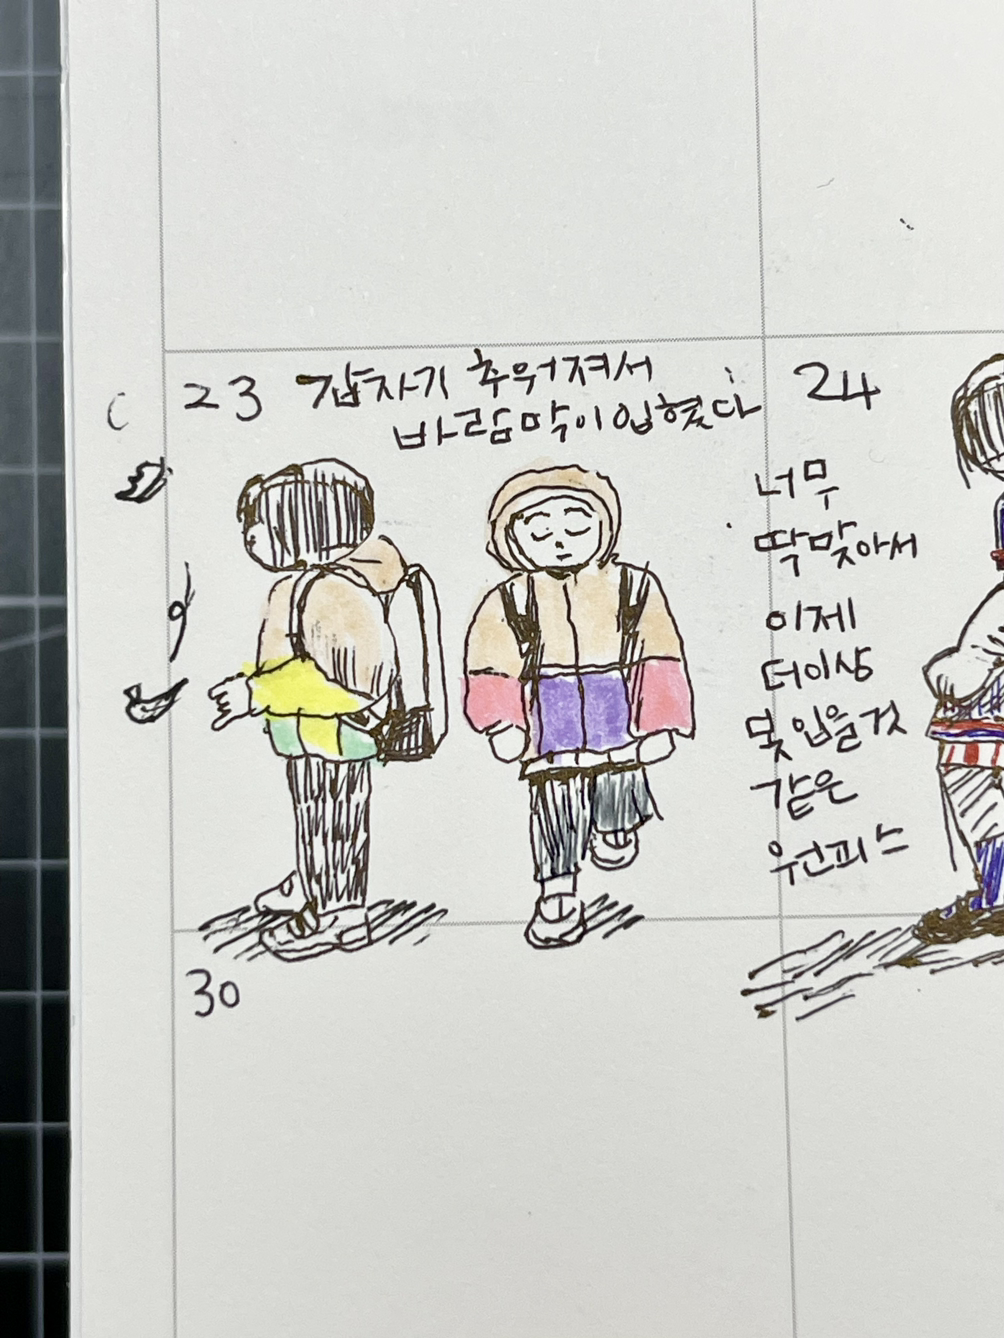 23 갑자기 추워져서
바람막이 입혔다
24
너무
딱 맞아서
이제
더이상
못 입을 것
같은
원피스
30